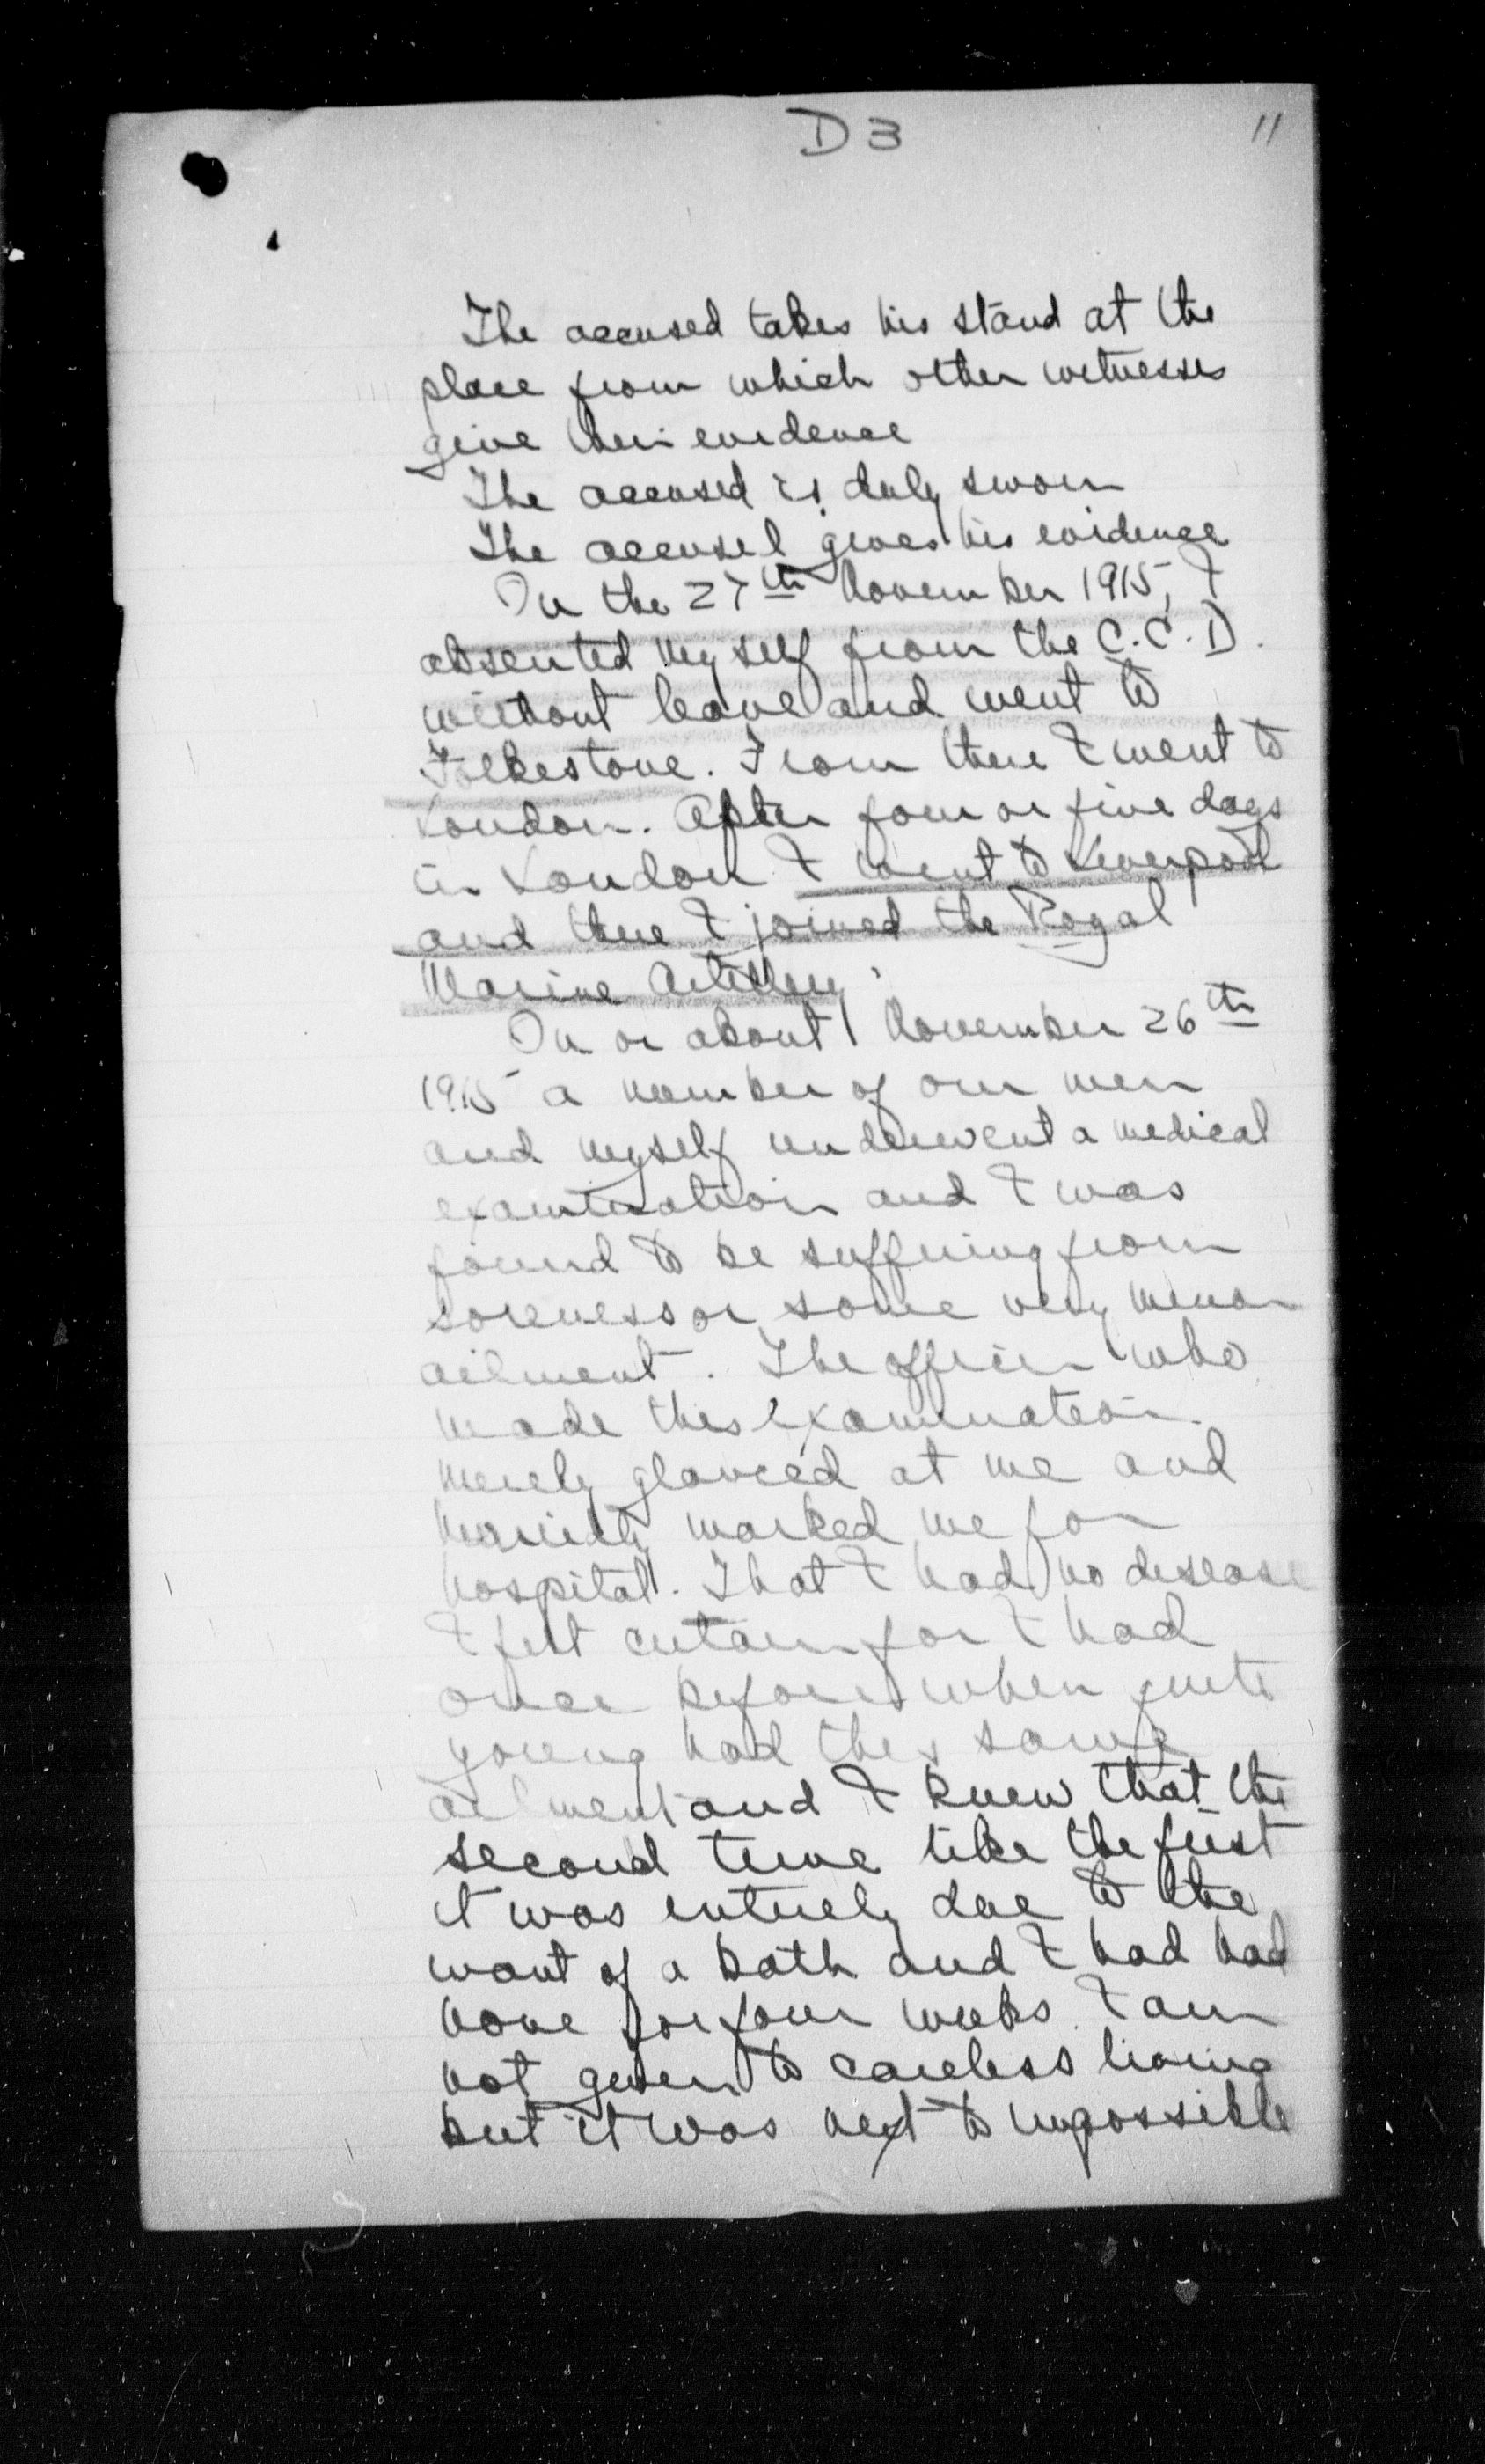 D3
11
The accused takes his stand at the
place from which other witnesses
give their evidence
The accused is duly sworn
The accused gives his evidence
On the 27th November 1915, I
absented myself from the C.C.D.
without leave and went to
Folkestone. From there I went to
London. After four or five days
in London I went to Liverpool
and there I joined the Royal
Marine Artillery.
On or about November 26th
1915 a number of our men
and myself underwent a medical
examination and I was
found to be suffering from
soreness or some very minor
ailment. The officer who
made this examination
merely glanced at me and
marked me for
hospital. That I had no disease
I felt certain for I had
once before when quite
young had the same
ailment and I knew that the
second time like the first
it was entirely due to the
want of a bath and I had had
none for four weeks. I am
not given to careless living
but it was next to impossible